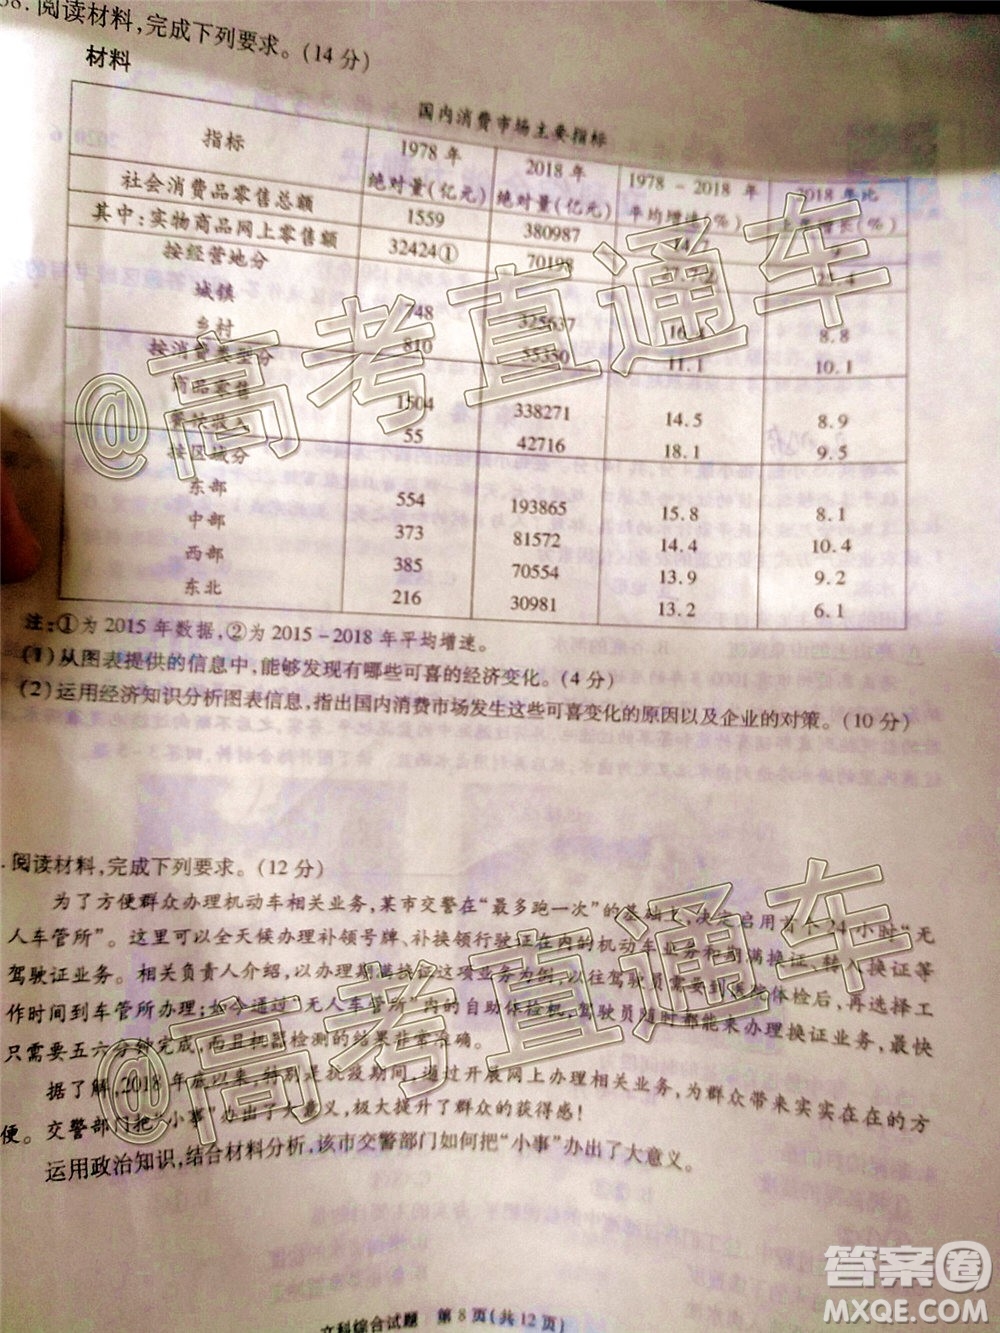 阅读材料,完成下列要求。(14 分)
材料
国内消费市场主要指标
指标 1978 年 绝对量(亿元) 2018 年 绝对量(亿元) 1978－2018 年 平均增速(%) 2018 年比
社会消费品零售总额 1559 380987
其中:实物商品网上零售额 32424① 70198
按经营地分
城镇 748 325637 8.8
乡村 810 55350 11.1 10.1
按消费类型分
商品零售 1504 338271 14.5 8.9
55 42716 18.1 9.5
按区域分
东部 554 193865 15.8 8.1
中部 373 81572 14.4 10.4
西部 385 70554 13.9 9.2
东北 216 30981 13.2 6.1
注:①为 2015 年数据,②为 2015－2018 年平均增速。
(1)从图表提供的信息中,能够发现有哪些可喜的经济变化。(4 分)
(2)运用经济知识分析图表信息,指出国内消费市场发生这些可喜变化的原因以及企业的对策。(10 分)
. 阅读材料,完成下列要求。(12 分)
为了方便群众办理机动车相关业务,某市交警在“最多跑一次”的基础上,决定启用首个 24 小时“无
人车管所”。这里可以全天候办理补领号牌、补换领行驶证在内的机动车业务和期满换证、转入换证等
驾驶证业务。相关负责人介绍,以办理期满换证这项业务为例,以往驾驶员需要到医院体检后,再选择工
作时间到车管所办理;如今通过“无人车管所”内的自助体检机,驾驶员随时都能来办理换证业务,最快
只需要五六分钟完成,而且机器检测的结果非常准确。
据了解,2018 年底以来,特别是抗疫期间,通过开展网上办理相关业务,为群众带来实实在在的方
便。交警部门把“小事”办出了大意义,极大提升了群众的获得感!
运用政治知识,结合材料分析,该市交警部门如何把“小事”办出了大意义。
文科综合试题 第 8 页(共 12 页)
@高考直通车
@高考直通车
答案圈
MXQE.COM